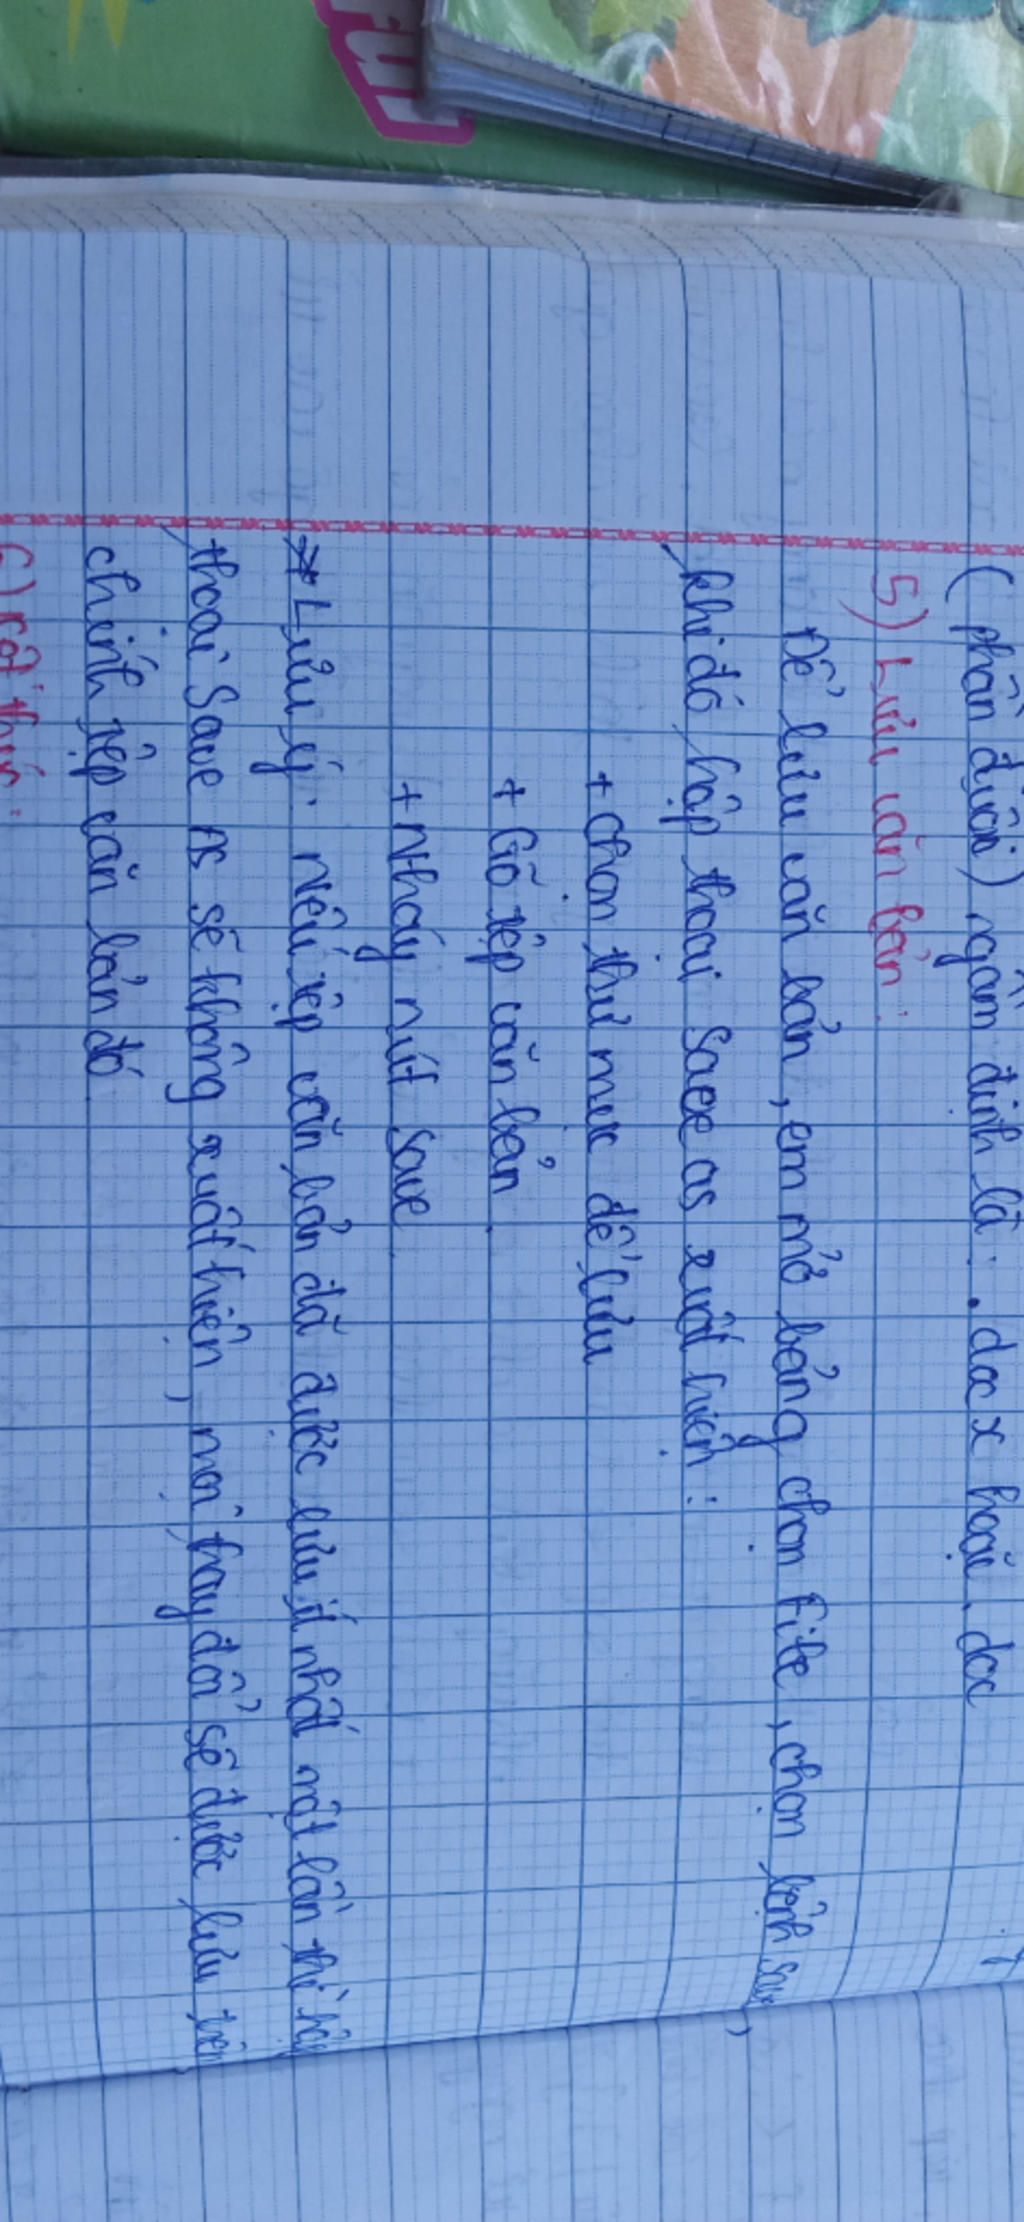 Ful
(phần đuôi) ngầm định là: .docx hoặc .doc
5) Lưu văn bản:
Để lưu văn bản, em mở bảng chọn File, chọn lệnh Save,
khi đó hộp thoại Save as xuất hiện:
+ chọn thư mục để lưu
+ Gõ tệp văn bản.
+ Nháy nút Save.
* Lưu ý: Nếu tệp văn bản đã được lưu ít nhất một lần thì hộp
thoại Save As sẽ không xuất hiện, mọi thay đổi sẽ được lưu trên
chính tệp văn bản đó
6)